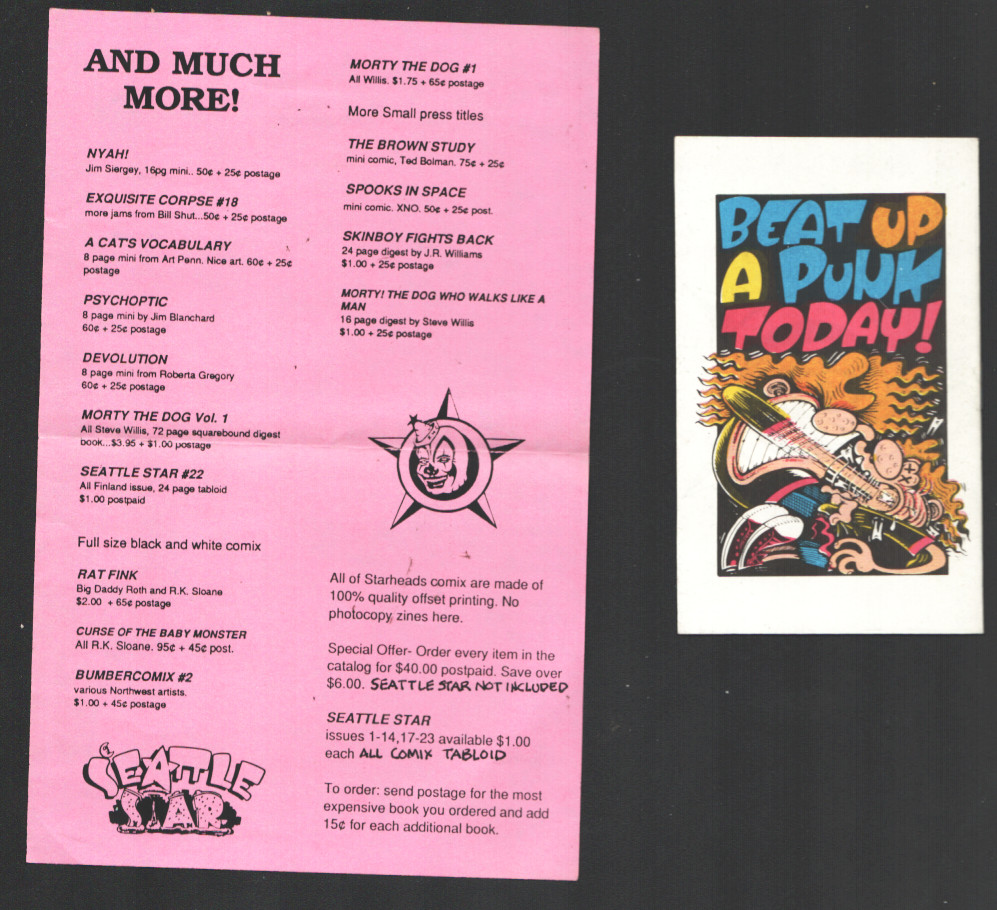 AND MUCH
MORE!
NYAH!
Jim Siergey, 16pg mini.. 50¢ + 25¢ postage
EXQUISITE CORPSE #18
more jams from Bill Shut...50¢ + 25¢ postage
A CAT'S VOCABULARY
8 page mini from Art Penn. Nice art. 60¢ + 25¢
postage
PSYCHOPTIC
8 page mini by Jim Blanchard
60¢ + 25¢ postage
DEVOLUTION
8 page mini from Roberta Gregory
60¢ + 25¢ postage
MORTY THE DOG Vol. 1
All Steve Willis, 72 page squarebound digest
book...$3.95 + $1.00 postage
SEATTLE STAR #22
All Finland issue, 24 page tabloid
$1.00 postpaid
Full size black and white comix
RAT FINK
Big Daddy Roth and R.K. Sloane
$2.00 + 65¢ postage
CURSE OF THE BABY MONSTER
All R.K. Sloane. 95¢ + 45¢ post.
BUMBERCOMIX #2
various Northwest artists.
$1.00 + 45¢ postage
SEATTLE
STAR
MORTY THE DOG #1
All Willis. $1.75 + 65¢ postage
More Small press titles
THE BROWN STUDY
mini comic, Ted Bolman. 75¢ + 25¢
SPOOKS IN SPACE
mini comic. XNO. 50¢ + 25¢ post.
SKINBOY FIGHTS BACK
24 page digest by J.R. Williams
$1.00 + 25¢ postage
MORTY! THE DOG WHO WALKS LIKE A
MAN
16 page digest by Steve Willis
$1.00 + 25¢ postage
All of Starheads comix are made of
100% quality offset printing. No
photocopy zines here.
Special Offer- Order every item in the
catalog for $40.00 postpaid. Save over
$6.00. SEATTLE STAR NOT INCLUDED
SEATTLE STAR
issues 1-14,17-23 available $1.00
each ALL COMIX TABLOID
To order: send postage for the most
expensive book you ordered and add
15¢ for each additional book.
BEAT UP
A PUNK
TODAY!